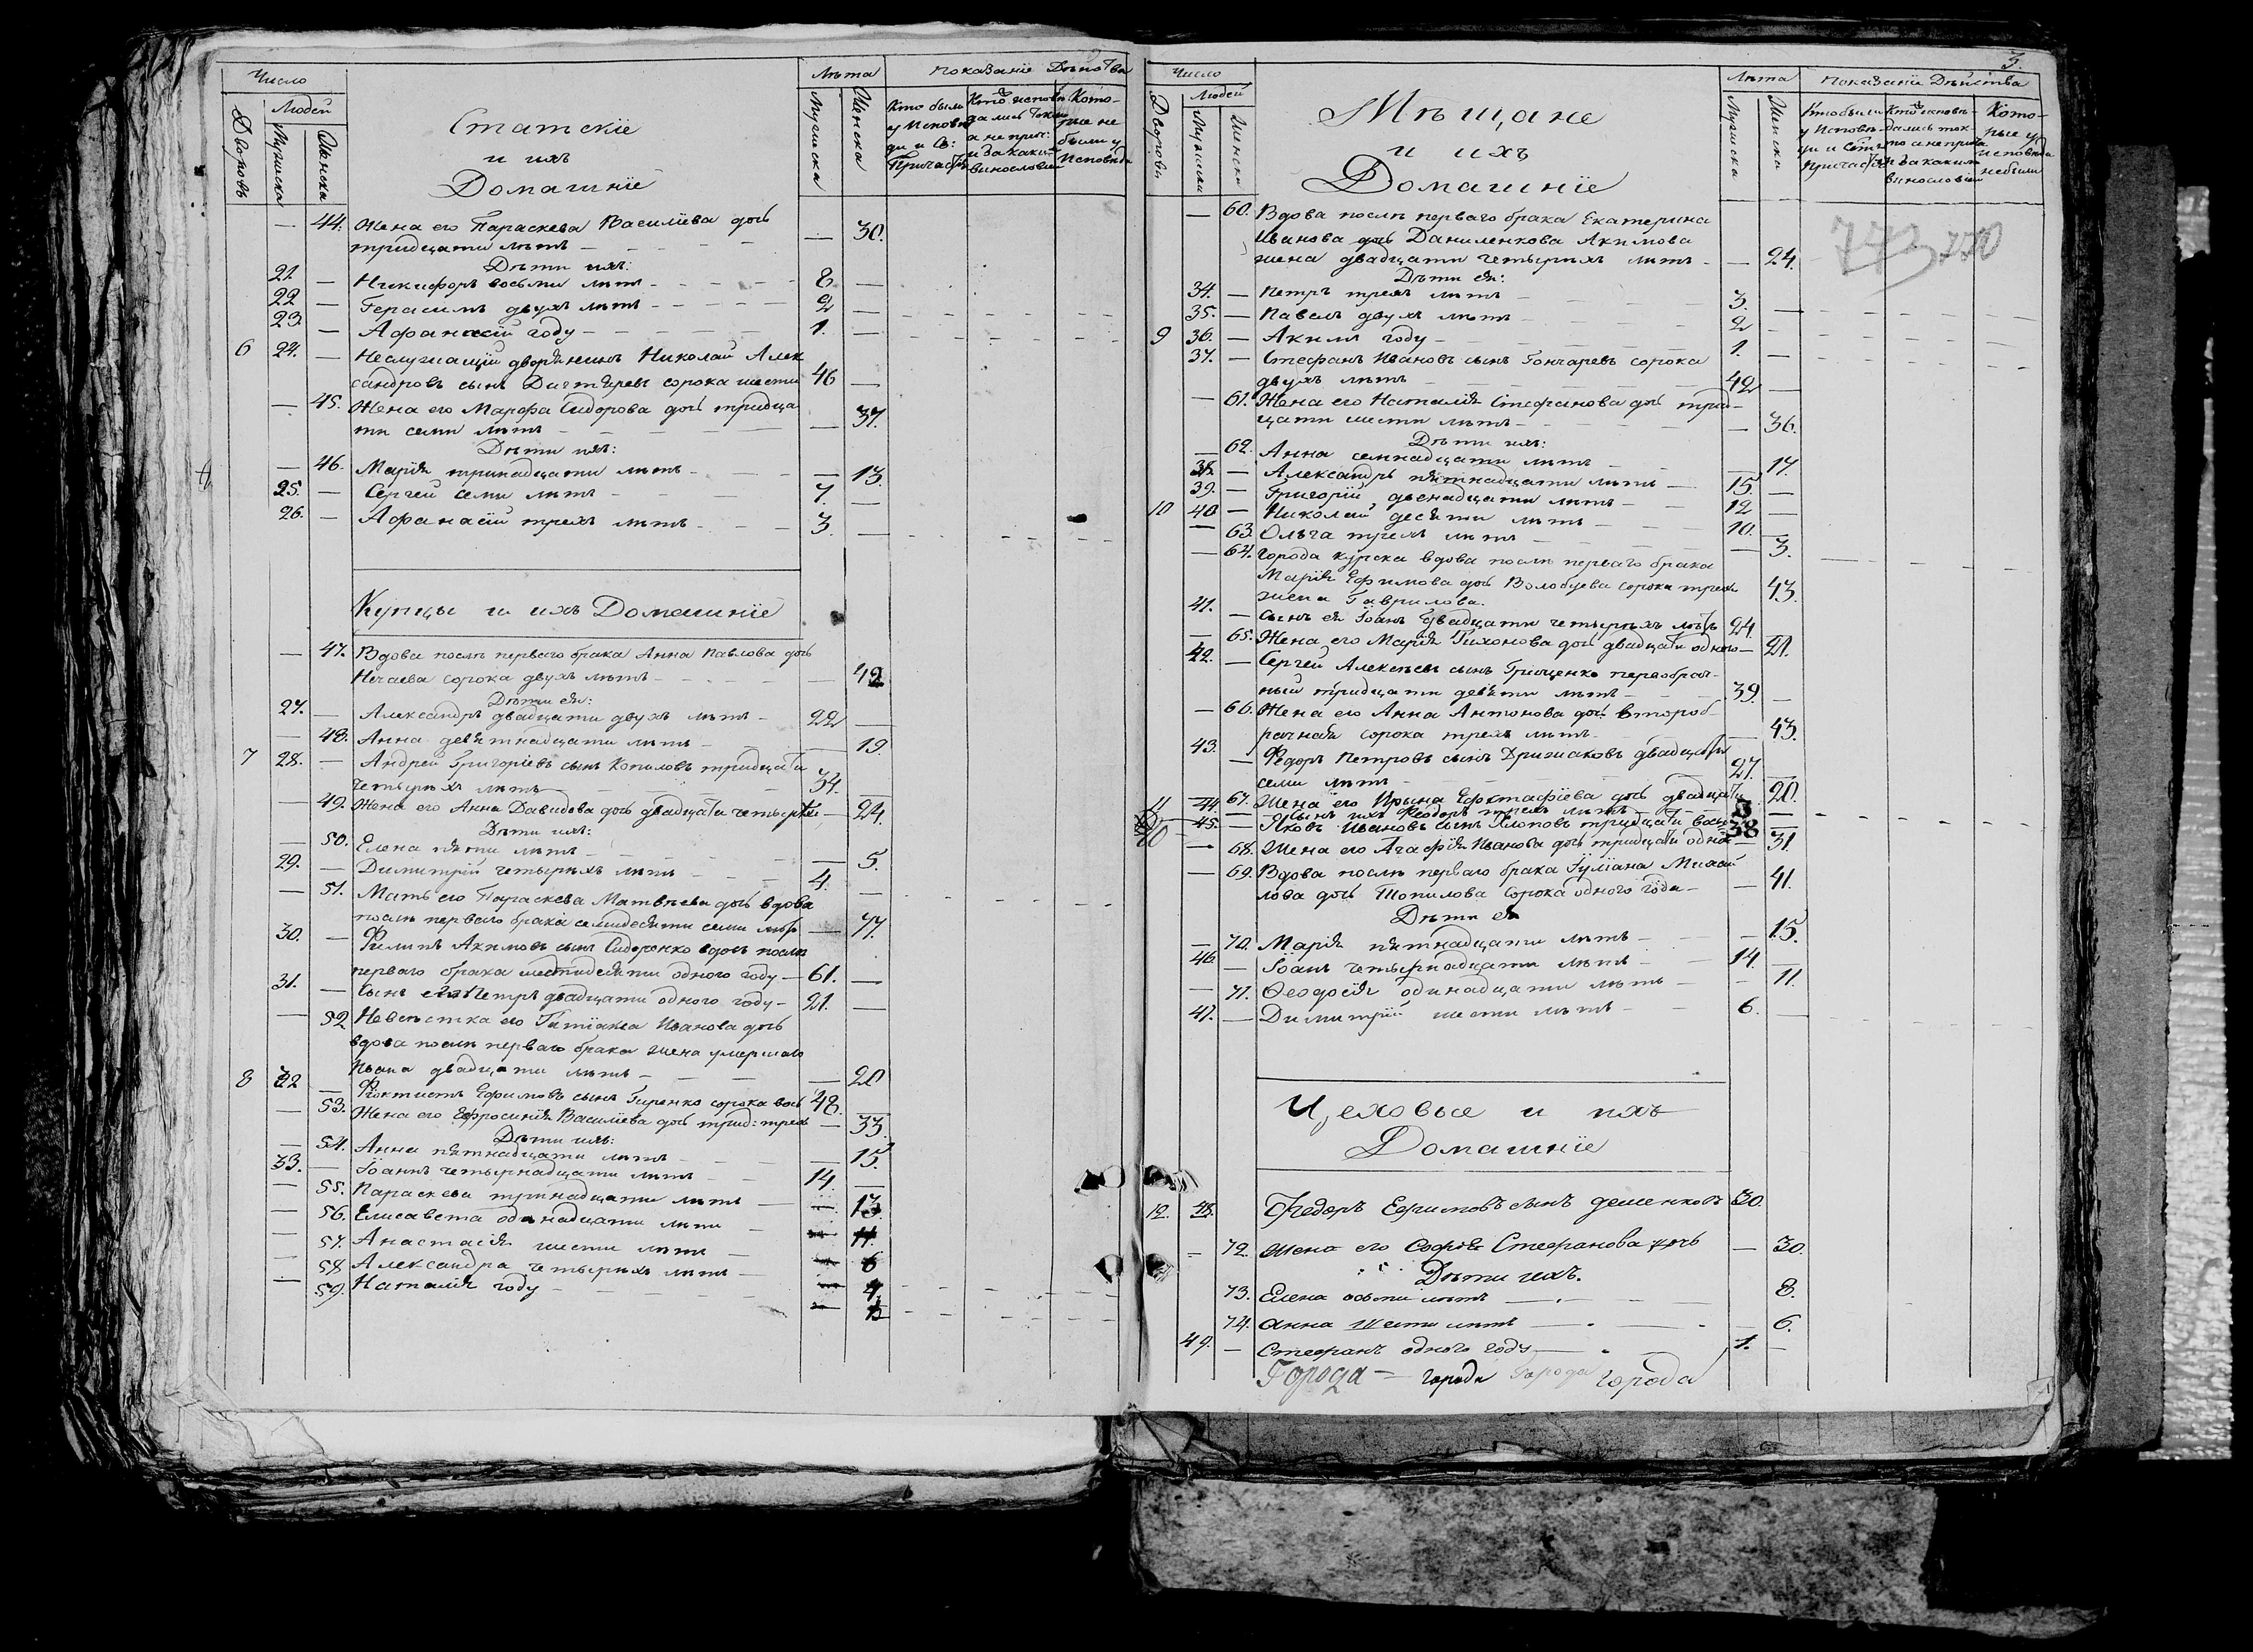 Число
Людей
Дворовъ
Мужеска
Женска
Статскіе
и ихъ
Домашніе
Лѣта
Мужеска
Женска
Показаніе Действа
Кто были
у Исповѣ
ди и Св:
Причастія
Кто исповѣ
дались токмо
а не прич:
и за какимъ
винословіемъ
Кото-
рые не
были у
Исповѣди
— 44. Жена его Параскева Василіева дочь
тридцати лѣтъ — — 30.
Дѣти ихъ:
21. — Никифоръ восьми лѣтъ — 8 —
22 — Герасимъ двухъ лѣтъ — 2 —
23. — Афанасій году — 1. —
6 24. — Неслужащій дворянинъ Николай Алек
сандровъ сынъ Дигтяревъ сорока шести 46 —
— 45. Жена его Марфа Сидорова дочь тридца
ти семи лѣтъ — — 37.
Дѣти ихъ:
— 46. Марія тринадцати лѣтъ — — 13.
25. — Сергей семи лѣтъ — 7. —
26. — Афанасій трехъ лѣтъ — 3. —
Купцы и ихъ Домашніе
— 47. Вдова послѣ перваго брака Анна Павлова дочь
Нечаева сорока двухъ лѣтъ — — 42
Дѣти ея:
27. — Александръ двадцати двухъ лѣтъ — 22 —
— 48. Анна девятнадцати лѣтъ — — 19
7 28. — Андрей Григоріевъ сынъ Копиловъ тридцати
четырехъ лѣтъ — 34. —
— 49. Жена его Анна Давидова дочь двадцати четырехъ — 24.
Дѣти ихъ:
— 50. Елена пяти лѣтъ — — 5.
29. — Димитрій четырехъ лѣтъ — 4. —
— 51. Мать его Параскева Матвѣева дочь вдова
послѣ перваго брака семидесяти семи лѣтъ — 77.
30. — Филипъ Акимовъ сынъ Сидоренко вдовъ послѣ
перваго брака шестидесяти одного году — 61. —
31. — Сынъ его Петръ двадцати одного году — 21. —
— 52 Невѣстка его Иванова дочь
вдова послѣ перваго брака жена умершаго
Ивана двадцати лѣтъ — — 20
8 32 — Фіоктистъ Ефимовъ сынъ Гиренко сорока вось 48. —
— 53. Жена его Ефросинія Василіева дочь трид: трехъ — 33.
Дѣти ихъ:
— 54. Анна пятнадцати лѣтъ — — 15.
33. — Іоаннъ четырнадцати лѣтъ — 14 —
— 55. Параскева тринадцати лѣтъ — — 13.
— 56. Елисавета одинадцати лѣтъ — — 11.
— 57. Анастасія шести лѣтъ — — 6
— 58 Александра четырехъ лѣтъ — — 4.
— 59. Наталія году — — 1
3.
Число
Людей
Дворовъ
Мужеска
Женска
Мѣщане
и ихъ
Домашніе
Лѣта
Мужеска
Женска
Показаніе Дѣйства
Кто были
у Исповѣ-
ди и Свят:
Причастія
Кто исповѣ-
дались ток-
мо а не прича
и за какимъ
винословіемъ
Кото-
рые у
исповѣди
небыли
— 60. Вдова послѣ перваго брака Екатерина
Иванова дочь Даниленкова Акимова
жена двадцати четырехъ лѣтъ — — 24.
Дѣти ея:
34. — Петръ трехъ лѣтъ — 3. —
35. — Павелъ двухъ лѣтъ — 2 —
9 36. — Акимъ году — 1. —
37. — Стефанъ Ивановъ сынъ Гончаревъ сорока
двухъ лѣтъ — 42 —
— 61. Жена его Наталія Стефанова дочь трид-
цати шести лѣтъ — — 36.
Дѣти ихъ:
— 62. Анна семнадцати лѣтъ — — 17.
38. — Александръ пятнадцати лѣтъ — 15. —
39. — Григорій двенадцати лѣтъ — 12 —
10 40 — Николай десяти лѣтъ — 10. —
— 63. Ольга трехъ лѣтъ — — 3.
— 64. Города Курска вдова послѣ перваго брака
Марія Ефимова дочь Волобуева сорока трехъ 43.
жена Гаврилова.
41. — Сынъ ея Іоанъ двадцати четырехъ лѣтъ 24.
— 65. Жена его Марія Тихонова дочь двадцати одного — 21.
42. — Сергей Алексѣевъ сынъ Гриценко первобрач-
ный тридцати девяти лѣтъ — 39. —
— 66. Жена его Анна Антонова дочь второб-
рачная сорока трехъ лѣтъ — — 43.
43. — Федоръ Петровъ сынъ Дрижаковъ двадцати
семи лѣтъ — 27. —
— 67. Жена его Ирына Ефстафіева дочь двадцати — 20.
11 44 — Сынъ ихъ Феодоръ трехъ лѣтъ — 3 —
45. — Яковъ Ивановъ сынъ Хлоповъ тридцати вось 38 —
— 68. Жена его Агафія Иванова дочь тридцати одна — 31
— 69. Вдова послѣ перваго брака Іуліана Михай
лова дочь Шопилова сорока одного года — — 41.
Дѣти ея
— 70. Марія пятнадцати лѣтъ — — 15.
46. — Іоанъ четырнадцати лѣтъ — 14. —
— 71. Ѳеодосія одинадцати лѣтъ — — 11.
47. — Димитрій шести лѣтъ — 6. —
Цеховые и ихъ
Домашніе
12. 48. Федоръ Ефимовъ сынъ Деменковъ 30.
— 72. Жена его Софія Стефанова дочь — 30.
Дѣти ихъ.
73. Елена осьми лѣтъ — 8.
74. Анна шести лѣтъ — 6.
49. — Стефанъ одного году — 1. —
Города — города города города